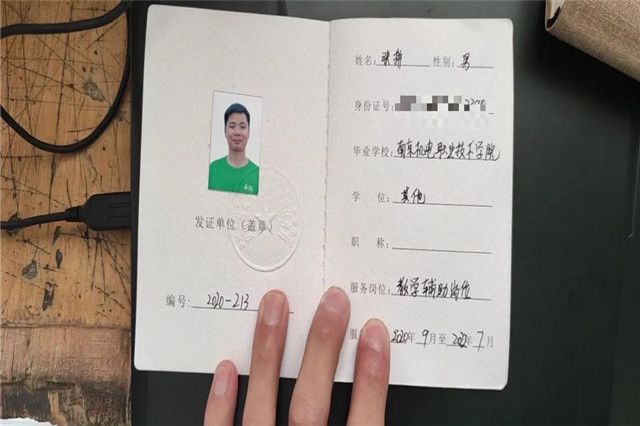 发证单位（盖章）
编号：2020-213
姓名：张 性别：男
身份证号：
毕业学校：南京机电职业技术学院
学 位：其他
职 称：
服务岗位：教学辅助岗位
2020年9月至2022年7月